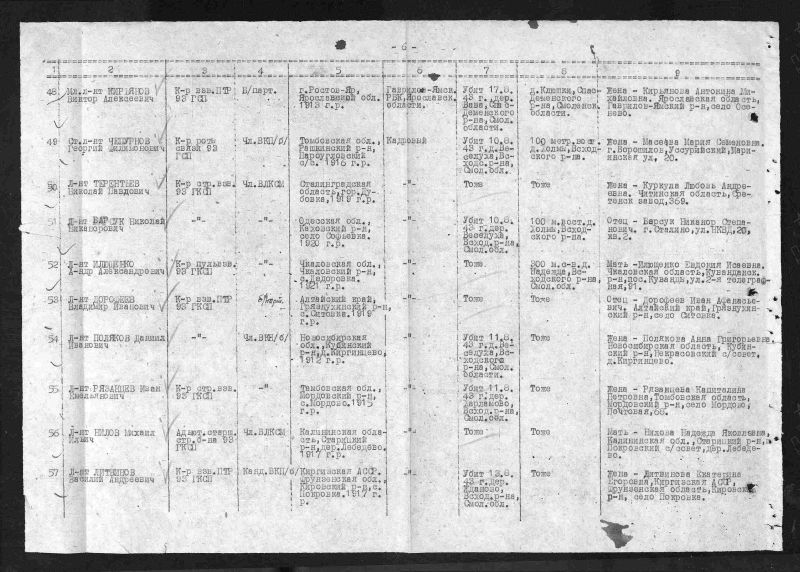 - 6 -
1 2 3 4 5 6 7 8 9
48 Мл.л-нт КИРЬЯНОВ Виктор Алексеевич
К-р взв.ПТР 93 ГСП
Б/парт.
г.Ростов-Яр, Ярославской обл. 1913 г.р.
Гаврилов-Ямск. РВК,Ярославск. области.
Убит 17.8. 43 г.дер. Спас-Деменского р-на,Смол. области.
д.Клюшки,Спас-Деменского р-на,Смоленск. области.
Жена - Кирьянова Антонина Михайловна. Ярославская область, Гаврилов-Ямский р-н,село
49 Ст.л-нт ЧЕПУРНОВ Георгий Филимонович
К-р роты связи 93 ГСП
Чл.ВКП/б/
Тамбовская обл., р-н, с/с. 1916 г.р.
Кадровый
Убит 10.8. 43 г.д.Веселуха,Всход.р-на, Смол.обл.
100 метр.вост. д.Холмы,Всход-ского р-на.
Жена - Мария Семеновна. г.Ворошилов,Уссурийский, ул, 20.
50 Л-нт ТЕРЕНТЬЕВ Николай Павлович
К-р стр.взв. 93 ГКСП
Чл.ВЛКСМ
Сталинградская область,гор.Дубовка,1919 г.р.
-"-
Тоже
Тоже
Жена - Куркула Любовь Андреевна. Читинская область,Сретенск завод,369.
51 Л-нт БАРСУК Николай Никанорович
-"-
-"-
Одесская обл., Каховский р-н, село Софьевка. 1920 г.р.
-"-
Убит 10.8. 43 г.дер. Веселуха, Всход.р-на, Смол.обл.
100 м.вост.д. Холмы,Всход-ского р-на.
Отец - Барсук Никанор Степанович. г.Сталино,ул.НКВД,20, кв.2.
52 Л-нт ИЛЮЩЕНКО Л-андр Александрович
К-р пульвзв. 93 ГКСП
-"-
Чкаловская обл., Чкаловский р-н, 1921 г.р.
-"-
Тоже
300 м.с-в.д. Надежда,Всходского р-на, Смол.обл.
Мать - Илющенко Евдокия Исаевна. Чкаловская область,Кувандынск. р-н,пос.Куванды,ул.2-я телеграфная,91.
53 Л-нт ДОРОФЕЕВ Владимир Иванович
К-р взв.ПТР 93 ГКСП
б/парт.
Алтайский край, Грязнухинский р-н, с.Ситовка.1919 г.р.
-"-
Тоже
Тоже
Отец - Дорофеев Иван Афанасьевич. Алтайский край,Грязнухинский р-н,село Ситовка.
54 Л-нт ПОЛЯКОВ Даниил Иванович
-"-
Чл.ВКП/б/
Новосибирская обл., р-н,д.Киргинцево, 1912 г.р.
-"-
Убит 11.8. 43 г.д.Веселуха,Всходского р-на,Смол. области.
Тоже
Жена - Полякова Анна Григорьевна Новосибирская область, р-н,Некрасовский с/совет, д.Киргинцево.
55 Л-нт РЯЗАНЦЕВ Иван Емельянович
К-р стр.взв. 93 ГКСП
-"-
Тамбовская обл., Мордовский р-н, с.Мордово.1915 г.р.
-"-
Убит 11.8. 43 г.дер. Варламово, Всход.р-на, Смол.обл.
Тоже
Жена - Рязанцева Капиталина Петровна,Томбовская область, Мордовский р-н,село Мордово, Почтовая,68.
56 Л-нт НИЛОВ Михаил Ильич
Адъют.старш. стр.б-на 93 ГКСП
Чл.ВЛКСМ
Калининская область,Старицкий р-н,дер.Лебедево. 1917 г.р.
-"-
Тоже
Тоже
Мать - Нилова Надежда Яковлевна, Калининская обл.,Старицкий р-н, Покровский с/совет,дер.Лебедево.
57 Л-нт ЛИТВИНОВ Василий Андреевич
К-р взв.ПТР 93 ГКСП
Канд.ВКП/б/
Киргизская АССР. Фрунзенская обл., Кировский р-н,с. Покровка.1917 г. р.
-"-
Убит 12.8. 43 г.дер. Жданово, Всход.р-на, Смол.обл.
Тоже
Жена - Литвинова Екатерина Егоровна,Киргизская АССР, Фрунзенская область,Кировский р-н, село Покровка.